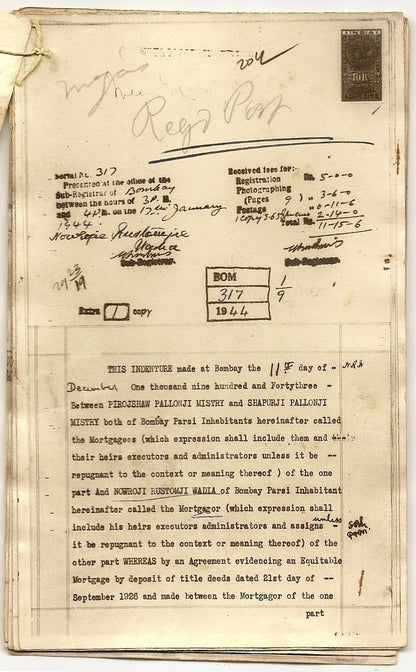 204
Regd Post
INDIA
10R
Serial No. 317
Presented at the office of the
Sub-Registrar of Bombay
between the hours of 3 P.M.
and 4 P.M. on the 17th January
1944.
Nowrojee Rustomjee
Wadia
Sub-Registrar.
Received fees for:-
Registration Rs. 5-0-0
Photographing
(Pages 9) " 3-6-0
Postage " 0-11-6
2-14-0
Total Rs. 11-15-6
Sub-Registrar.
BOM
317
1944
1
9
Extra 1 copy
THIS INDENTURE made at Bombay the 11th day of -
December One thousand nine hundred and Fortythree -
Between PIROJSHAW PALLONJI MISTRY and SHAPURJI PALLONJI
MISTRY both of Bombay Parsi Inhabitants hereinafter called
the Mortgagees (which expression shall include them and
their heirs executors and administrators unless it be --
repugnant to the context or meaning thereof ) of the one
part And NOWROJI RUSTOMJI WADIA of Bombay Parsi Inhabitant
hereinafter called the Mortgagor (which expression shall
include his heirs executors administrators and assigns unless
it be repugnant to the context or meaning thereof) of the
other part WHEREAS by an Agreement evidencing an Equitable
Mortgage by deposit of title deeds dated 21st day of --
September 1926 and made between the Mortgagor of the one
part